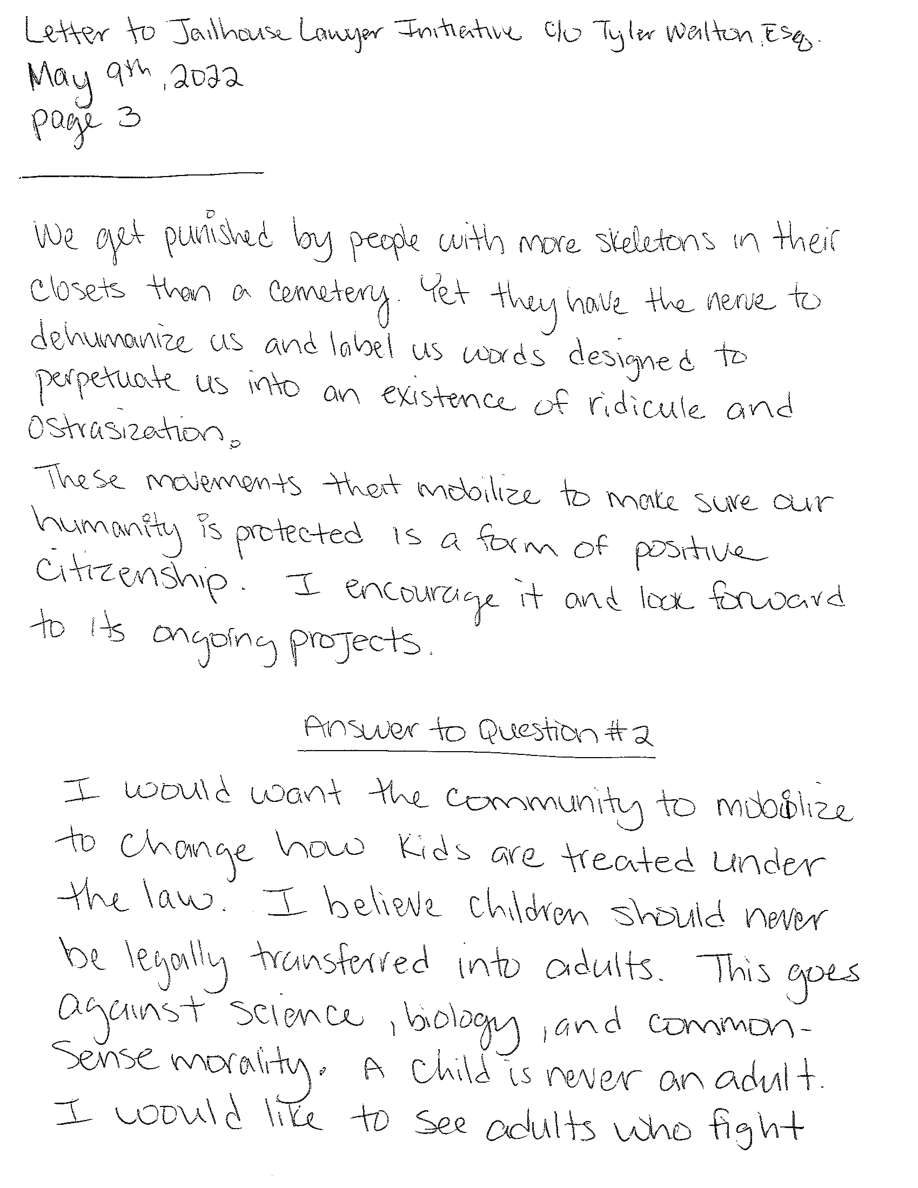 Letter to Jailhouse Lawyer Initiative c/o Tyler Walton, Esq.
May 9th, 2022
page 3
We get punished by people with more skeletons in their
closets than a cemetery. Yet they have the nerve to
dehumanize us and label us words designed to
perpetuate us into an existence of ridicule and
ostrasization.
These movements that mobilize to make sure our
humanity is protected is a form of positive
citizenship. I encourage it and look forward
to its ongoing projects.
Answer to Question #2
I would want the community to mobilize
to change how kids are treated under
the law. I believe children should never
be legally transferred into adults. This goes
against science, biology, and common-
sense morality. A child is never an adult.
I would like to see adults who fight